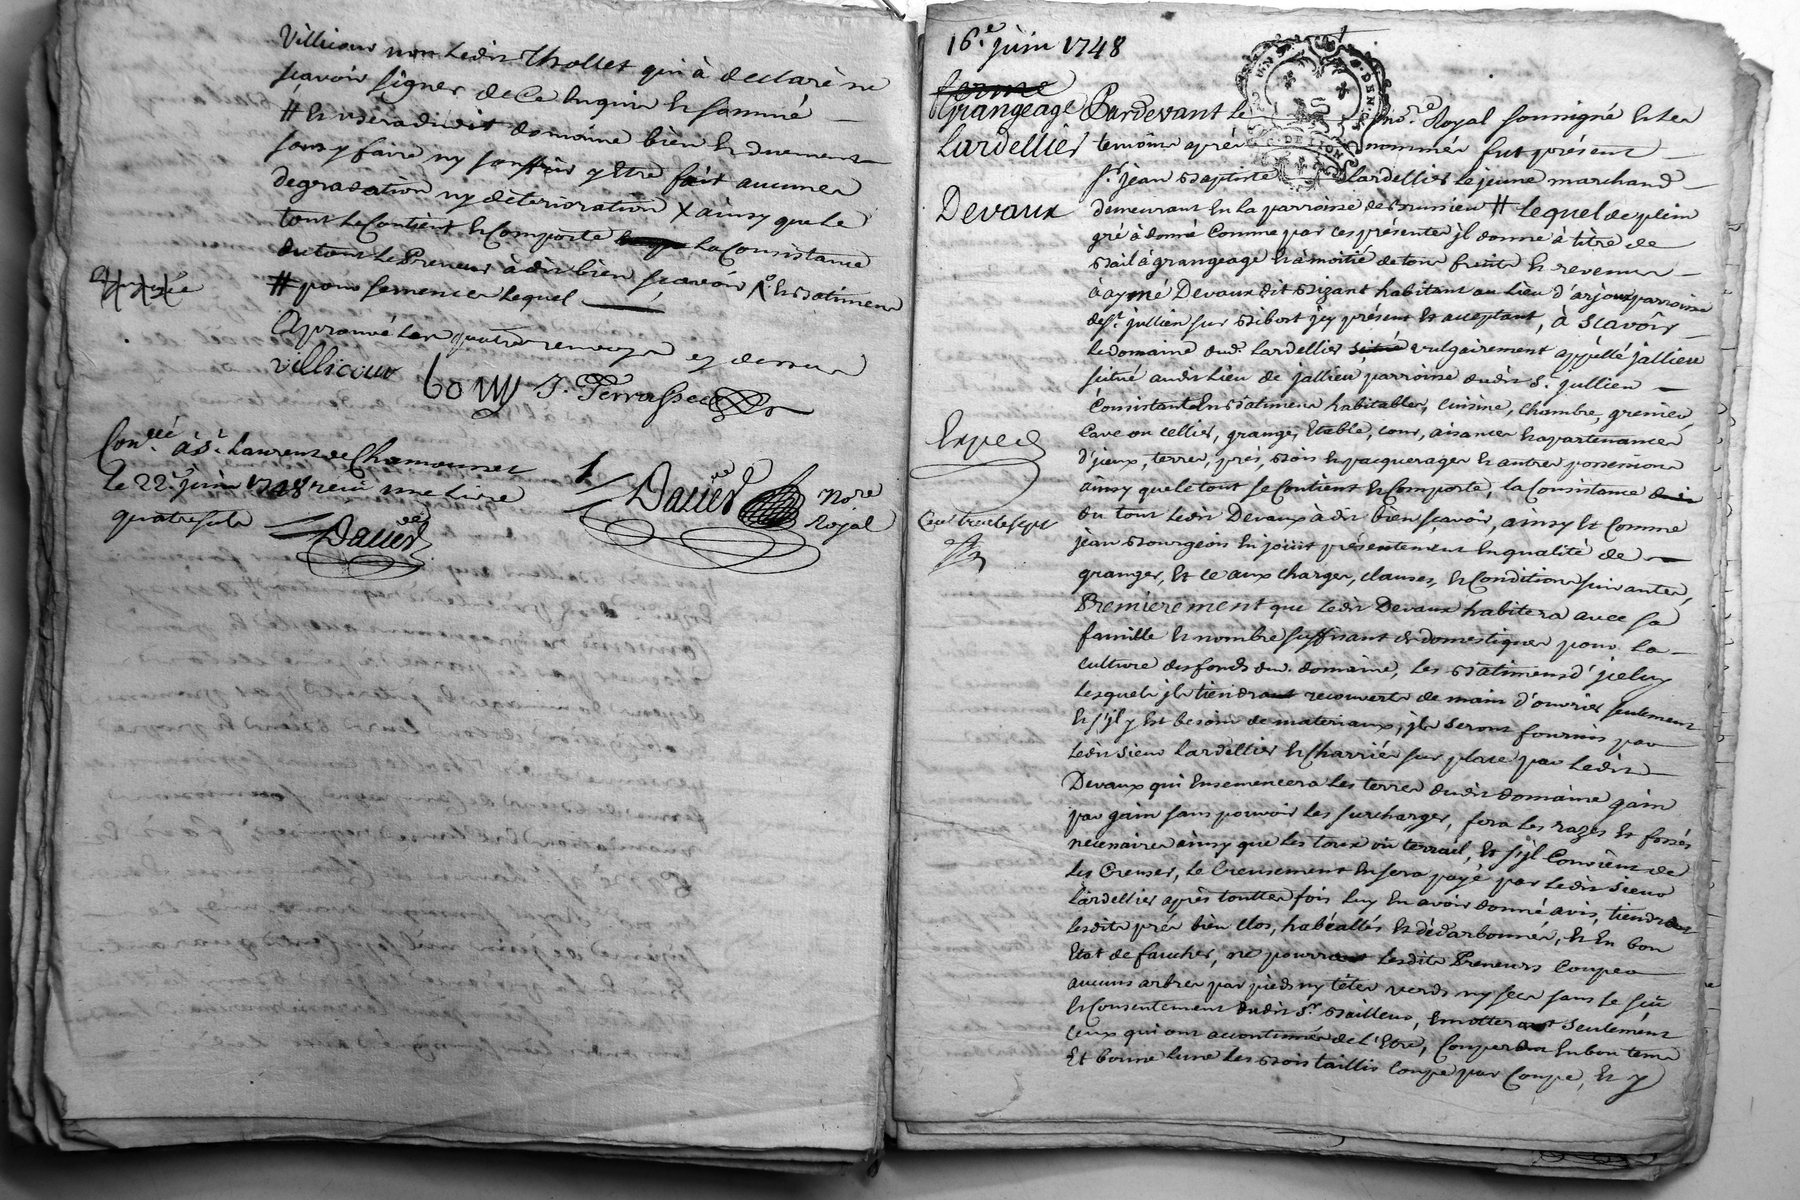 Villicour non ledit Thollet qui à declaré ne
scavoir signer de ce enquis et sommé
# et usera dudit domaine bien et duement
sans y faire ny souffrir y etre fait aucunes
degradation ny déterioration x ainsy que le
tout se contient et comporte la consistance
du tout le Preneur à dit bien scavoir et batimens
# pour semences lequel
Aprouvé les quatre renvoys cy dessus
villicour bony J. Perrussel
Con.lée à S.t Laurent de Chamousset
le 22.e juin 1748 reçu une livre
quatre sols
Davier
Davier no.re Royal
16.e juin 1748
ferme
Grangeage
Lardellier
Devaux
Expec
Cent trente sept
Pardevant le no.re Royal soussigné et les
temoins après nommés fut présent
s.r jean Baptiste Lardellier le jeune marchand
demeurant en la parroisse de Brussieu # lequel de plein
gré à donné comme par ces présentes jl donne à titre de
Bail à grangeage et à moitié de tous fruits et revenus
à aymé Devaux dit Bizant habitant au lieu d'arjoux parroisse
de S.t jullien sur Bibost jcy présent et acceptant, à scavoir
le domaine dud. Lardellier situé vulgairement appellé jallieu
situé audit lieu de jallieu parroisse dudit S.t jullien
Consistant en Batimens habitables, cuisine, chambre, grenier,
cave ou cellier, grange, Etable, cour, aisances et apartenances
d'jceux, terres, prés, Bois et paquerages et autres possessions
ainsy que le tout se contient et comporte, la consistance
du tout ledit Devaux à dit bien scavoir, ainsy et comme
jean Bourgeois en joüit présentement en qualité de
granger, Et ce aux charges, clauses, et conditions suivantes,
Premierement que ledit Devaux habitera avec sa
famille et nombre suffisant de domestiques pour la
culture des fonds dud. domaine, les Batimens d'jceluy
lesquels jls tiendront recouverts de main d'ouvrier seulement
et s'jl y est besoin de materiaux, jls seront fournis par
ledit sieur Lardellier et charriés sur place par ledit
Devaux qui ensemencera les terres dudit domaine gain
par gain sans pouvoir les surcharger, fera les razes et fossés
nécessaires ainsy que les toux ou terrail, et s'jl convient de
les creuser, le creusement en sera payé par ledit sieur
Lardellier après touttes fois luy en avoir donné avis, tiendront
lesdits prés bien clos, habéallés et dédarbonnés, et en bon
Etat de faucher, ne pourront lesdits Preneurs couper
aucuns arbres par pieds ny têtes verds ny secs sans le sçu
et consentement dudit S.r Bailleur, Emotteront seulement
ceux qui ont accoutumés de l'Etre, couperont en bon tems
Et bonne lune les Bois taillis coupe par coupe, et y